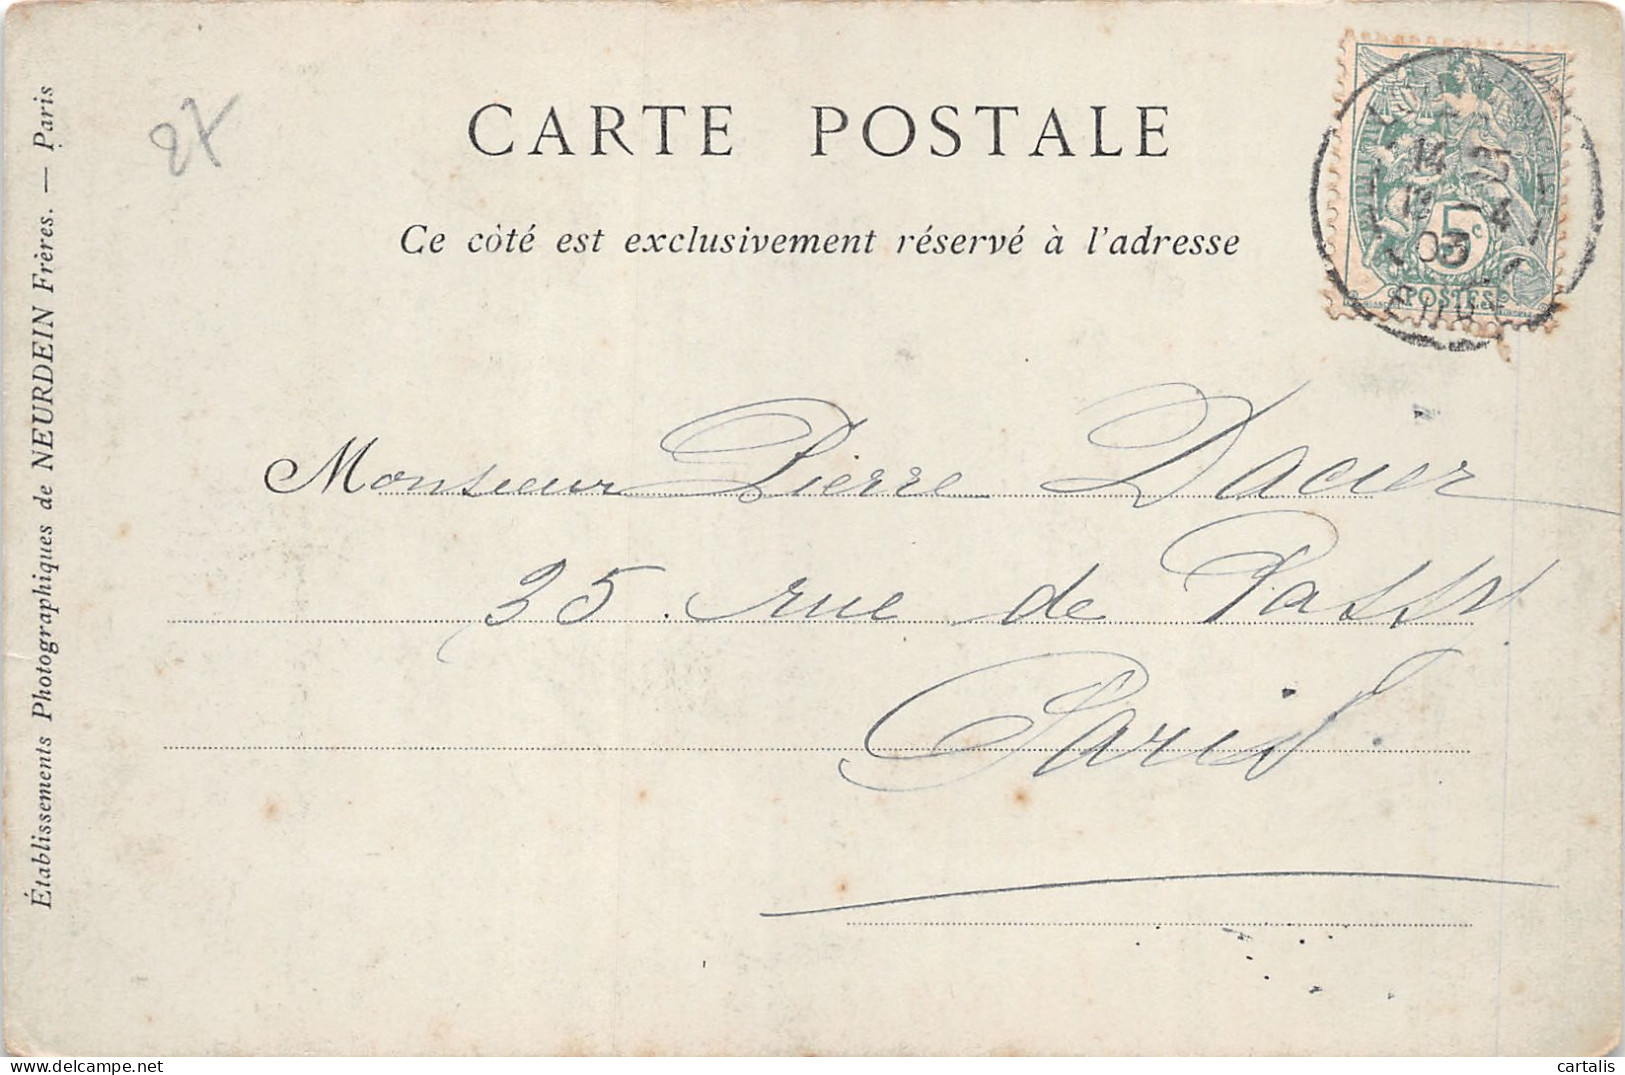 CARTE POSTALE
Ce côté est exclusivement réservé à l'adresse
Établissements Photographiques de NEURDEIN Frères. — Paris
27
FRANÇAISE
5c
POSTES
14
03
EURE
Monsieur Pierre Dacier
35. rue de Passy
Paris.
cartalis